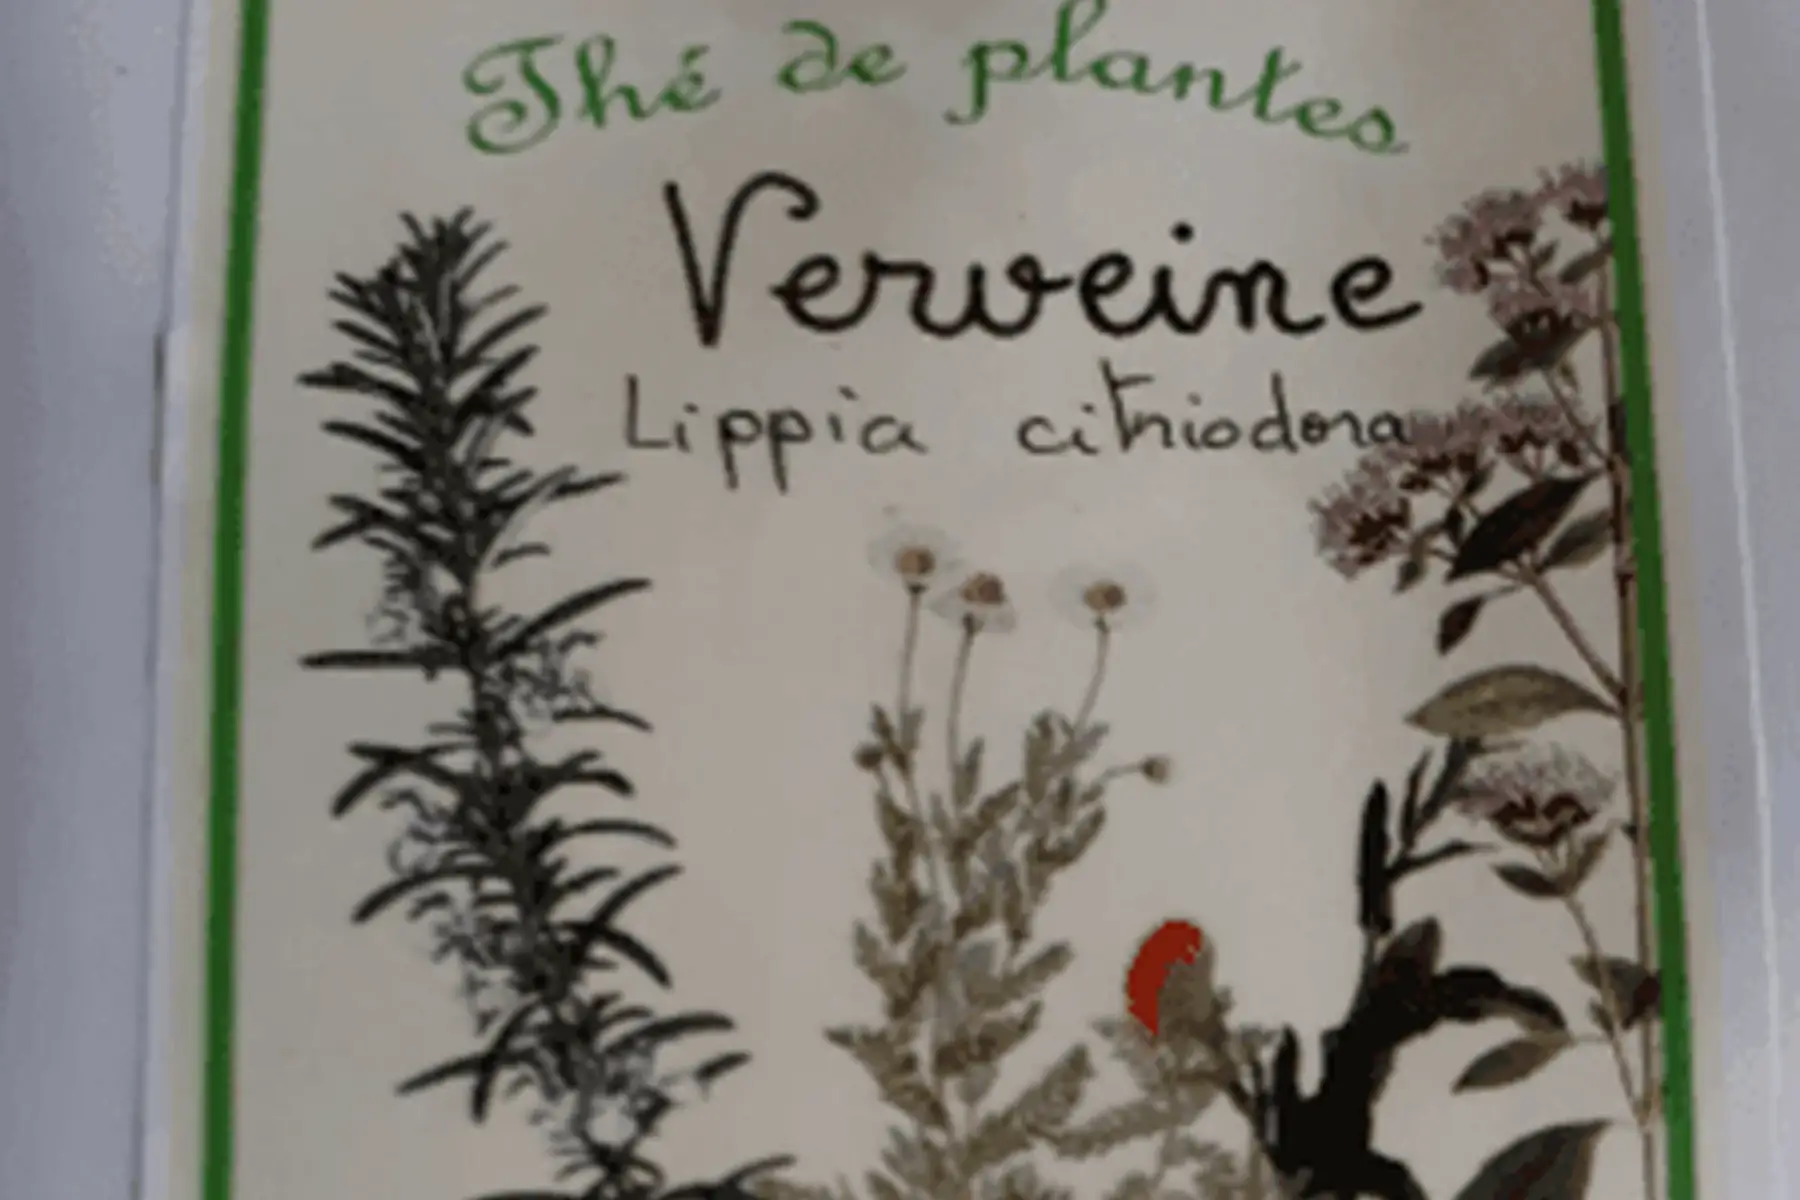 Thé de plantes
Verveine
Lippia citriodora